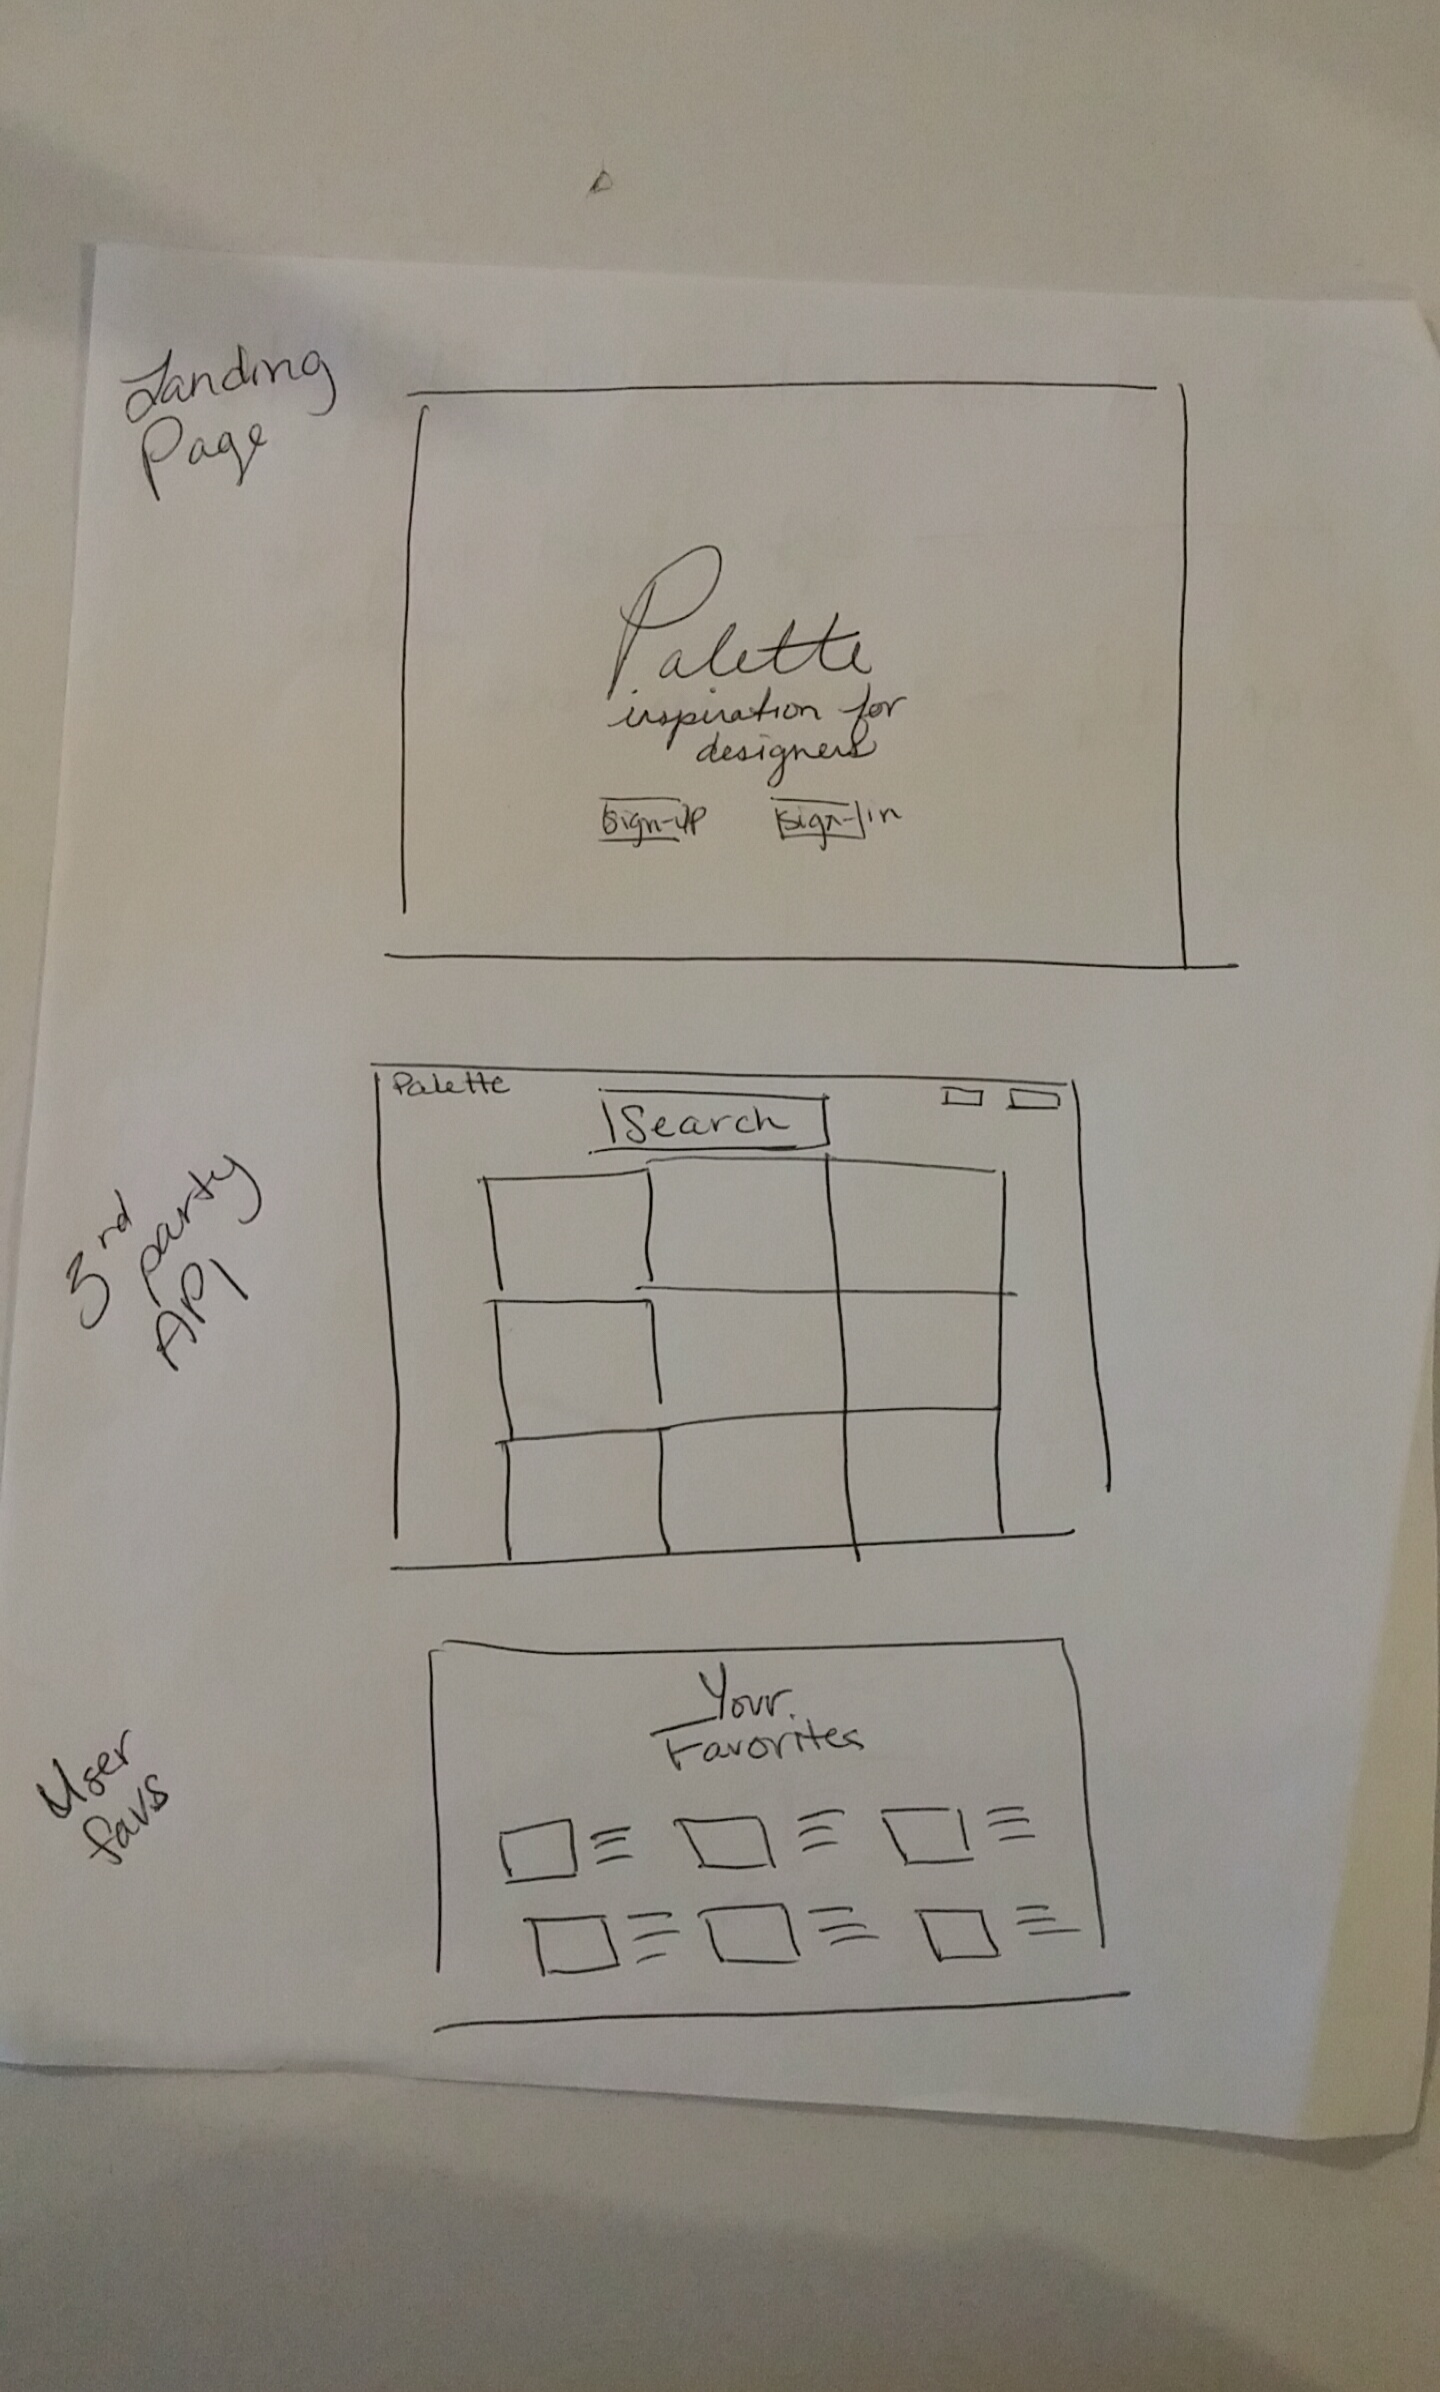 Landing
Page
Palette
inspiration for
designers
Sign-up
Sign-in
3rd
party
API
Palette
Search
User
favs
Your
Favorites